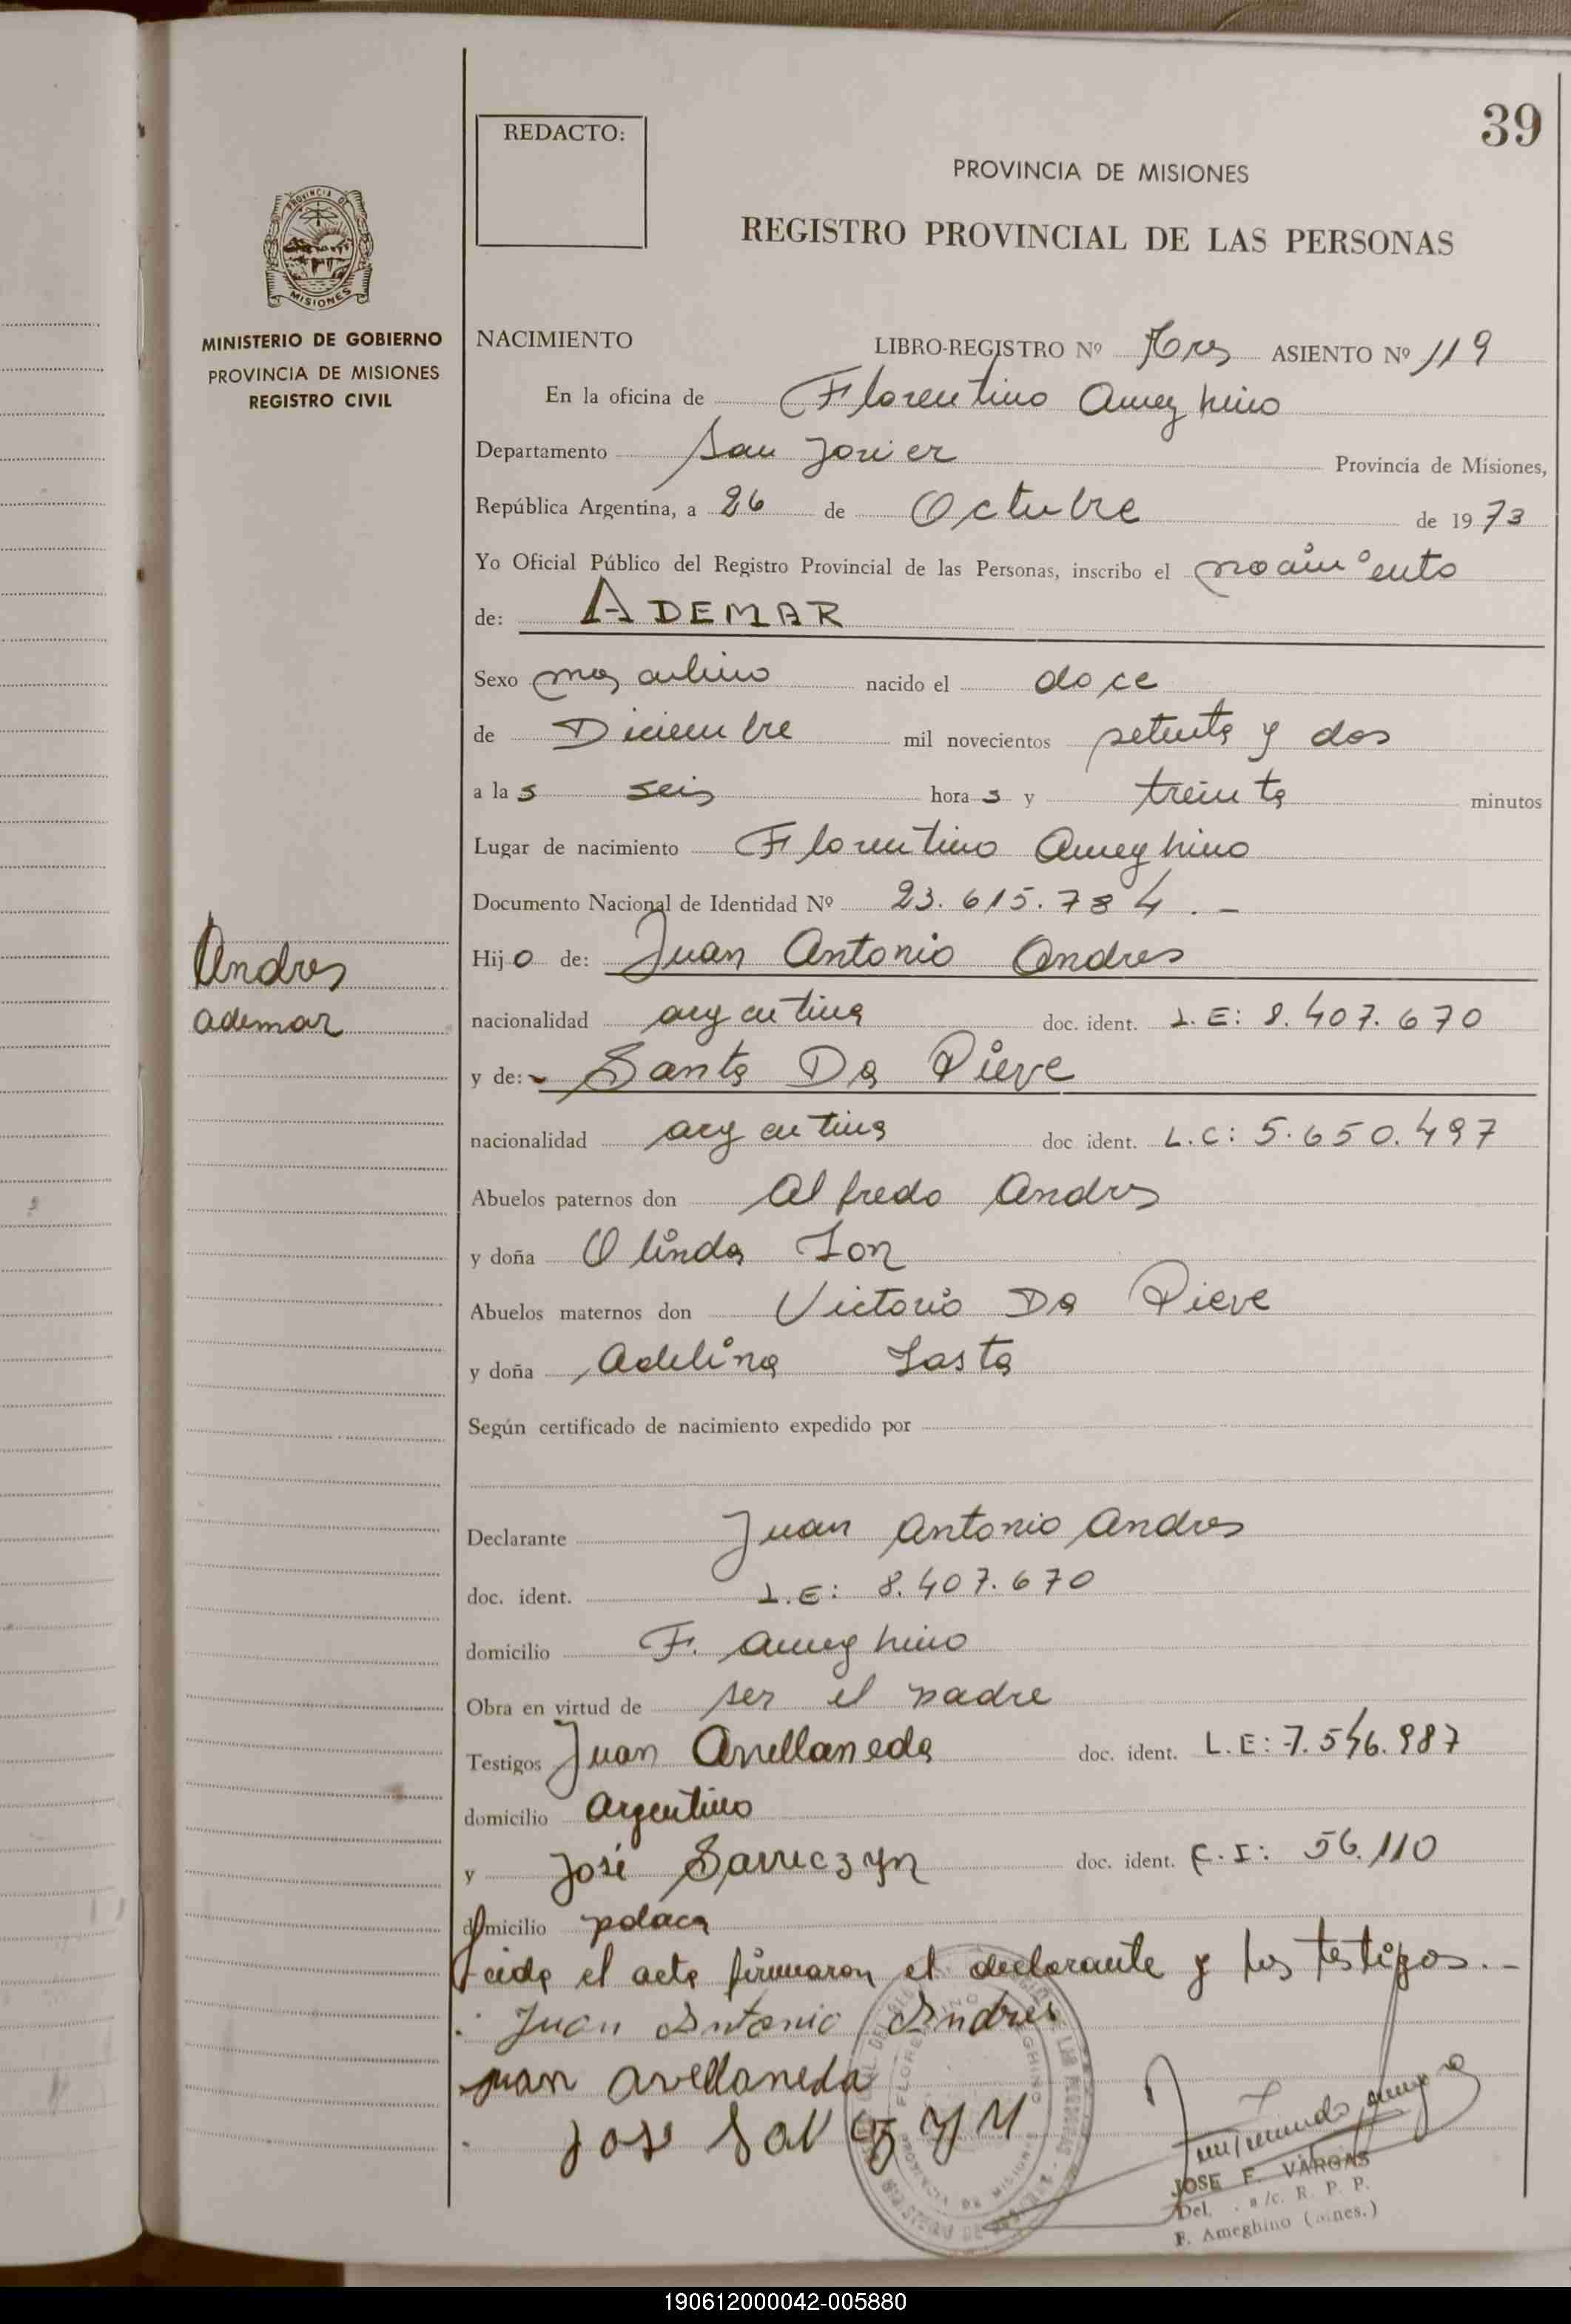 39
REDACTO:
PROVINCIA DE MISIONES
REGISTRO PROVINCIAL DE LAS PERSONAS
PROVINCIA DE
MISIONES
MINISTERIO DE GOBIERNO
PROVINCIA DE MISIONES
REGISTRO CIVIL
NACIMIENTO LIBRO-REGISTRO Nº Tres ASIENTO Nº 119
En la oficina de Florentino Ameghino
Departamento San Javier Provincia de Misiones,
República Argentina, a 26 de Octubre de 1973
Yo Oficial Público del Registro Provincial de las Personas, inscribo el nacimiento
de: ADEMAR
Sexo masculino nacido el doce
de Diciembre mil novecientos setenta y dos
a las seis horas y treinta minutos
Lugar de nacimiento Florentino Ameghino
Documento Nacional de Identidad Nº 23.615.784.-
Andres
Hijo de: Juan Antonio Andres
Ademar
nacionalidad argentina doc. ident. L.E: 8.407.670
y de: Santa Da Pieve
nacionalidad argentina doc ident. L.C: 5.650.497
Abuelos paternos don Alfredo Andres
y doña Olinda Lor
Abuelos maternos don Victorio Da Pieve
y doña Adelina Lasta
Según certificado de nacimiento expedido por
Declarante Juan Antonio Andres
doc. ident. L.E: 8.407.670
domicilio F. Ameghino
Obra en virtud de ser el padre
Testigos Juan Avellaneda doc. ident. L.E: 7.546.987
domicilio Argentino
y José doc. ident. C.I: 56.110
domicilio polaca
Leida el acta firmaron el declarante y los testigos.-
Juan Antonio Andres
Juan Avellaneda
Jose
JOSE F. VARGAS
Del. a/c. R. P. P.
F. Ameghino (Mnes.)
190612000042-005880